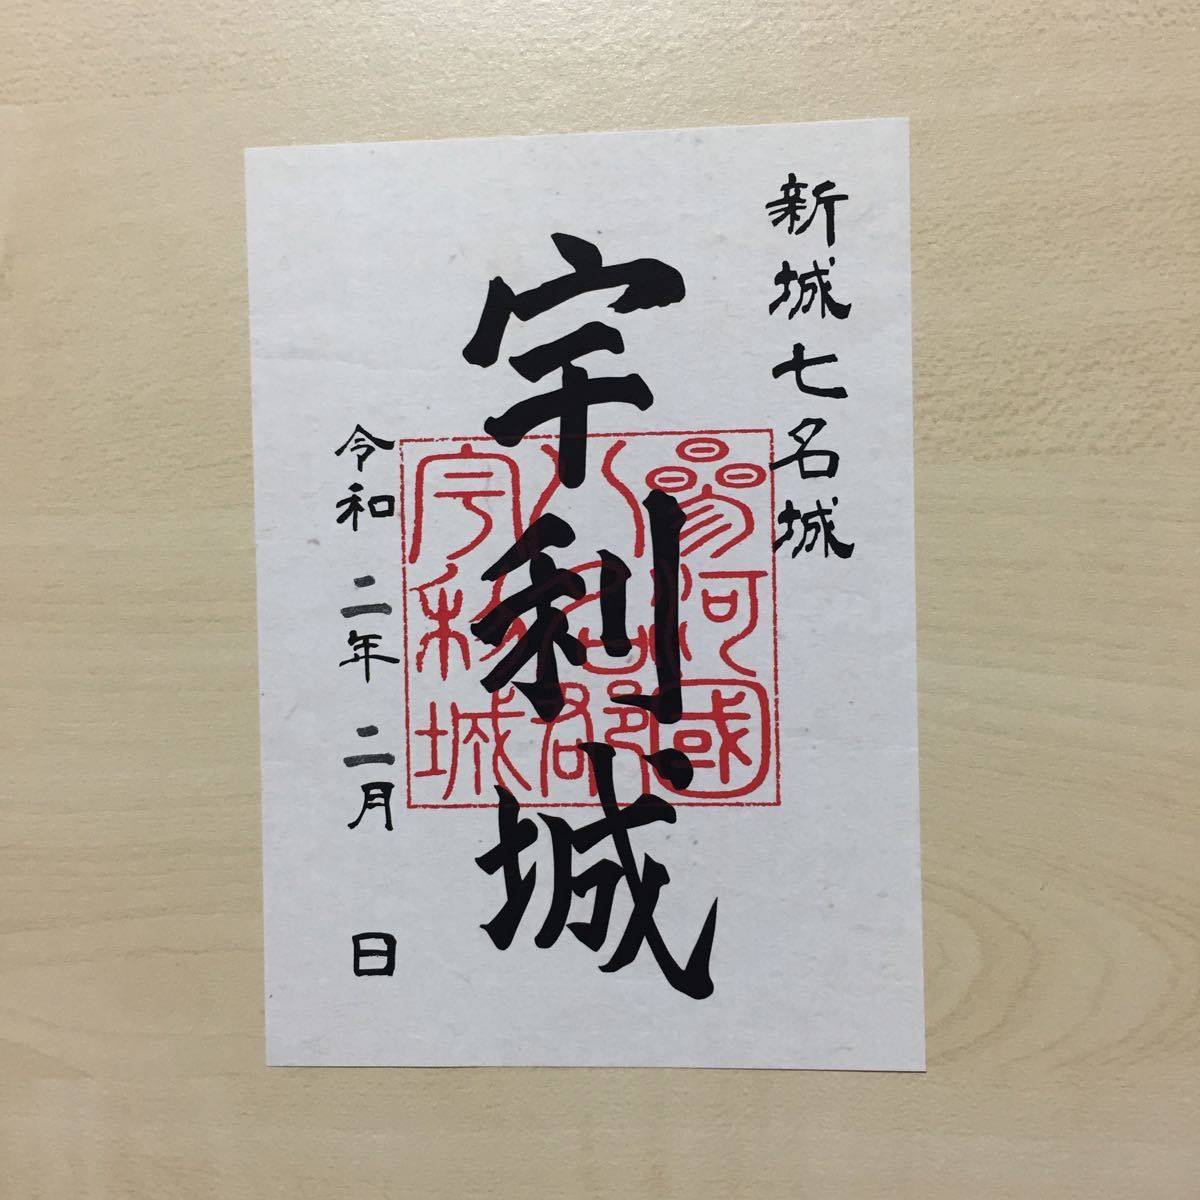 新城七名城
宇利城
參河國
八名郡
宇利城
令和 二年 二月 日